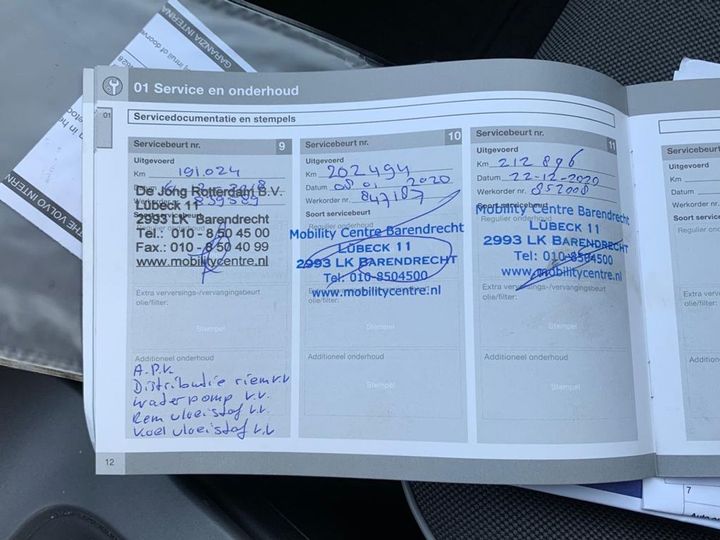 01 Service en onderhoud
01
Servicedocumentatie en stempels
Servicebeurt nr. 9
Uitgevoerd
Km 191.024
Datum 2018
Werkorder nr. 839589
De Jong Rotterdam B.V.
Lübeck 11
2993 LK Barendrecht
Tel.: 010 - 8 50 45 00
Fax.: 010 - 8 50 40 99
www.mobilitycentre.nl
Soort servicebeurt
Regulier onderhoud
Extra verversings-/vervangingsbeurt
olie/filter:
Stempel
Additioneel onderhoud
A.P.K.
Distributie riem v.v
Waterpomp v.v.
Rem vloeistof v.v.
Koel vloeistof v.v
Servicebeurt nr. 10
Uitgevoerd
Km 202494
Datum 08 01 2020
Werkorder nr. 847187
Soort servicebeurt
Regulier onderhoud
Mobility Centre Barendrecht
Lübeck 11
2993 LK Barendrecht
Tel: 010-8504500
www.mobilitycentre.nl
Extra verversings-/vervangingsbeurt
olie/filter:
Stempel
Additioneel onderhoud
Stempel
Servicebeurt nr. 11
Uitgevoerd
Km 212 896
Datum 22-12-2020
Werkorder nr. 852008
Soort servicebeurt
Regulier onderhoud
Mobility Centre Barendrecht
Lübeck 11
2993 LK Barendrecht
Tel: 010-8504500
www.mobilitycentre.nl
Extra verversings-/vervangingsbeurt
olie/filter:
Stempel
Additioneel onderhoud
Stempel
12
Servicebeurt
Uitgevoerd
Km
Datum
Werkorder
Soort
Regulier
Extra
olie/filter
Additioneel
7
GARANZIA INTERN
THE VOLVO INTERN